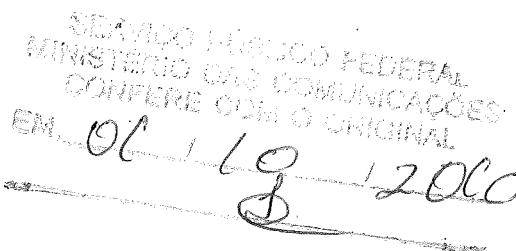 SERVIÇO PÚBLICO FEDERAL
MINISTÉRIO DAS COMUNICAÇÕES
CONFERE COM O ORIGINAL
EM, 06 / 10 / 2000